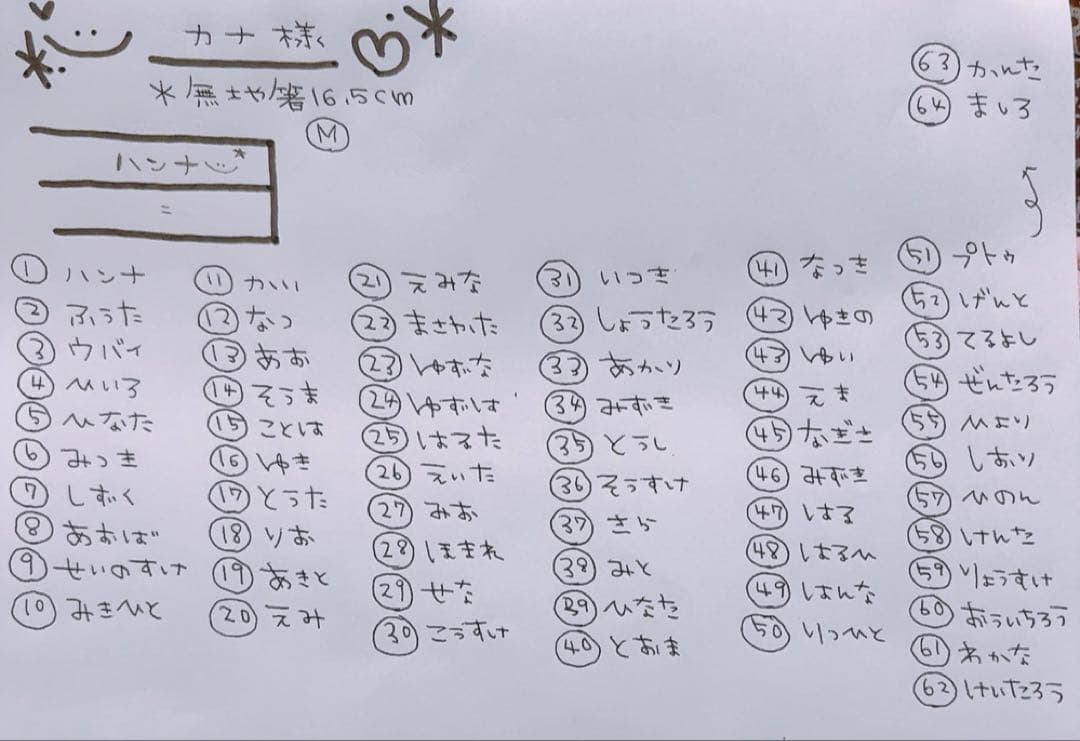 カナ様
*無土や箸16.5cm
M
ハンナ
=
① ハンナ
② ふうた
③ ウバイ
④ ひいろ
⑤ ひなた
⑥ みつき
⑦ しずく
⑧ あおば
⑨ せいのすけ
⑩ みきひと
⑪ かい
⑫ なつ
⑬ あお
⑭ そうま
⑮ ことは
⑯ ゆき
⑰ とうた
⑱ りお
⑲ あきと
⑳ えみ
㉑ えみな
㉒ まさわた
㉓ ゆずな
㉔ ゆずは
㉕ はるた
㉖ えいた
㉗ みお
㉘ ほまれ
㉙ せな
㉚ こうすけ
㉛ いつき
㉜ しょうたろう
㉝ あかり
㉞ みずき
㉟ とうし
㊱ そうすけ
㊲ きら
㊳ みと
㊴ ひなた
㊵ とおま
㊶ なつき
㊷ ゆきの
㊸ ゆい
㊹ えま
㊺ なぎさ
㊻ みずき
㊼ はる
㊽ はるひ
㊾ はんな
㊿ りつひと
51 プトゥ
52 げんと
53 てるよし
54 ぜんたろう
55 ひより
56 しおり
57 ひのん
58 けんた
59 りょうすけ
60 おういちろう
61 わかな
62 けいたろう
63 かんた
64 ましろ